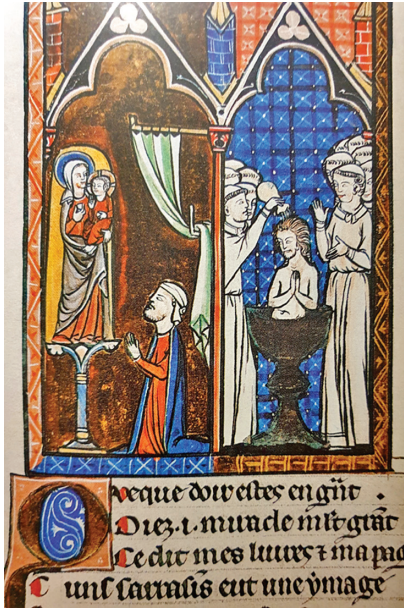 Porceque doir estes en grãt .
Oiez .i. miracle mlt grãt
Ce dit mes livres ⁊ ma pag
C uns sarrasins eut une ymage